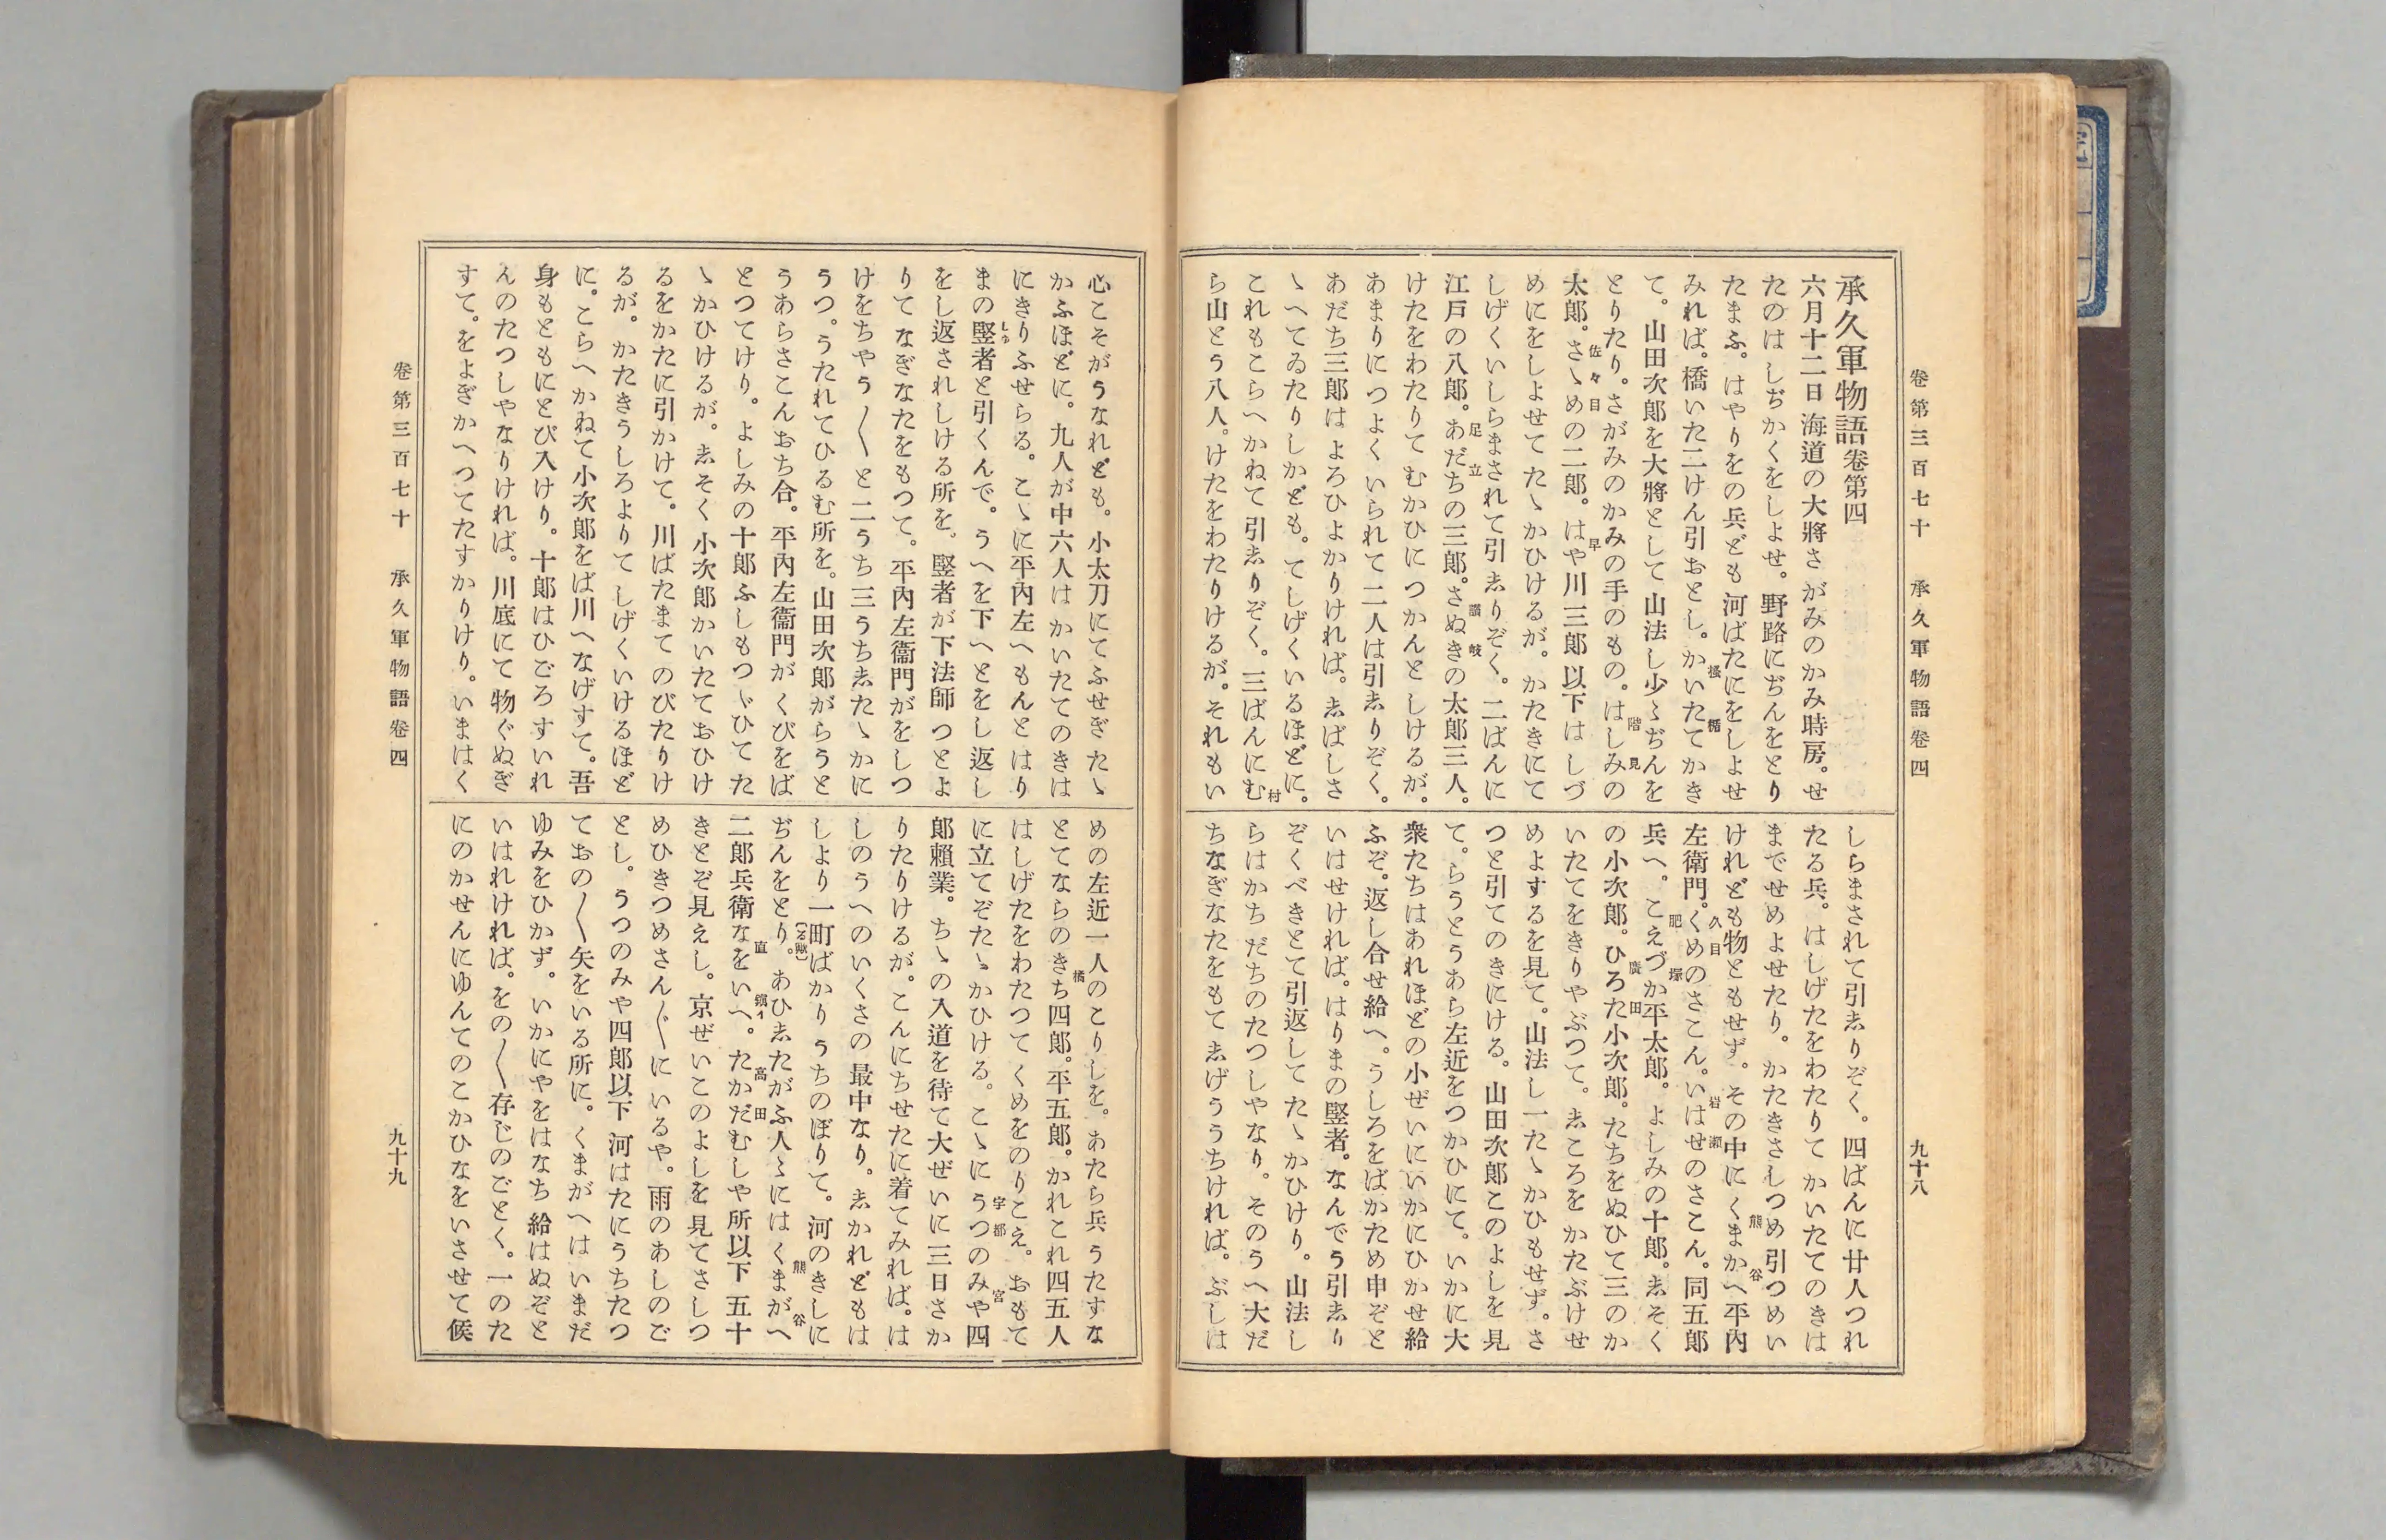 卷第三百七十　承久軍物語卷四
九十八
承久軍物語卷第四
六月十二日 海道の大將さがみのかみ時房。せ
たのは しぢかくをしよせ。野路にぢんをとり
たまふ。はやりをの兵ども 河ばたにをしよせ
みれば。橋いた二けん引おとし。かいたてかき
て。山田次郎を大將として 山法し少〻ぢんを
とりたり。さがみのかみの手のもの。はしみの
太郎。さゝめの二郎。はや川三郎 以下は しづ
めにをしよせて たゝかひけるが。かたきにて
しげくいしらまされて引 志りぞく。二ばんに
江戸の八郎。あだちの三郎。さぬきの太郎三人。
けたをわたりて むかひに つかんと しけるが。
あまりに つよく いられて 二人は引志りぞく。
あだち三郎は よろひよかりければ。志ばしさ
ゝへてゐたりしかども。てしげくいるほどに。
これもこらへかねて 引志りぞく。三ばんにむ
ら山とう八人。けたをわたりけるが。それもい
しらまされて引志りぞく。四ばんに廿人つれ
たる兵。はしげたをわたりて かいたてのきは
までせめよせたり。かたきさしつめ 引つめい
けれども物ともせず。その中に くまかへ平內
左衛門。くめのさこん。いはせのさこん。同五郎
兵へ。こえづか平太郎。よしみの十郎。志そく
の小次郎。ひろた小次郎。たちをぬひて三のか
いたてをきりやぶつて。志ころを かたぶけせ
めよするを見て。山法し一たゝかひもせず。さ
つと引てのきにける。山田次郎このよしを見
て。らうとうあら左近をつかひにて。いかに大
衆たちはあれほどの小ぜいにいかにひかせ給
ふぞ。返し合せ給へ。うしろをばかため申ぞと
いはせければ。はりまの竪者。なんでう引志り
ぞくべきとて引返して たゝかひけり。山法し
らはかち だちのたつしやなり。そのうへ大だ
ちなぎなたをもて志げううちければ。ぶしは
心こそがうなれども。小太刀にてふせぎ たゝ
かふほどに。九人が中六人は かいたてのきは
にきりふせらる。こゝに平內左へもんと はり
まの竪者と引くんで。うへを下へとをし返し
をし返されしける所を。竪者が下法師 つとよ
りて なぎなたをもつて。平內左衞門がをしつ
けをちやう〱と二うち三うち志たゝかに
うつ。うたれてひるむ所を。山田次郎がらうと
うあらさこんおち合。平內左衞門が くびをば
とつてけり。よしみの十郎ふしもつゞひて た
ゝかひけるが。志そく 小次郎かいたておひけ
るをかたに引かけて。川ばたまて のびたりけ
るが。かたきうしろよりて しげくいけるほど
に。こらへかねて小次郎をば川へなげすて。吾
身もともにとび入けり。十郎はひごろ すいれ
んのたつしやなりければ。川底にて 物ぐぬぎ
すて。をよぎかへつてたすかりけり。いまはく
めの左近一人のこりしを。あたら兵 うたすな
とてならのきち四郎。平五郎。かれこれ四五人
はしげたをわたつて くめをのりこえ。おもて
に立てぞたゝかひける。こゝに うつのみや四
郎賴業。ちゝの入道を待て大ぜいに三日さか
りたりけるが。こんにちせたに着てみれば。は
しのうへのいくさの 最中なり。志かれどもは
しより一町ばかり うちのぼりて。河のきしに
ぢんをとり。あひ志たがふ人〻には くまがへ
二郎兵衛なをいへ。たかだむしや所以下 五十
きとぞ見えし。京ぜいこのよしを 見てさしつ
めひきつめさん〲に いるや。雨のあしのご
とし。うつのみや四郎以下 河はたにうちたつ
ておの〱矢をいる所に。くまがへは いまだ
ゆみをひかず。いかにやをはなち 給はぬぞと
いはれければ。をの〱存じのごとく。一のた
にのかせんにゆんてのこかひなをいさせて候
卷第三百七十　承久軍物語卷四
九十九